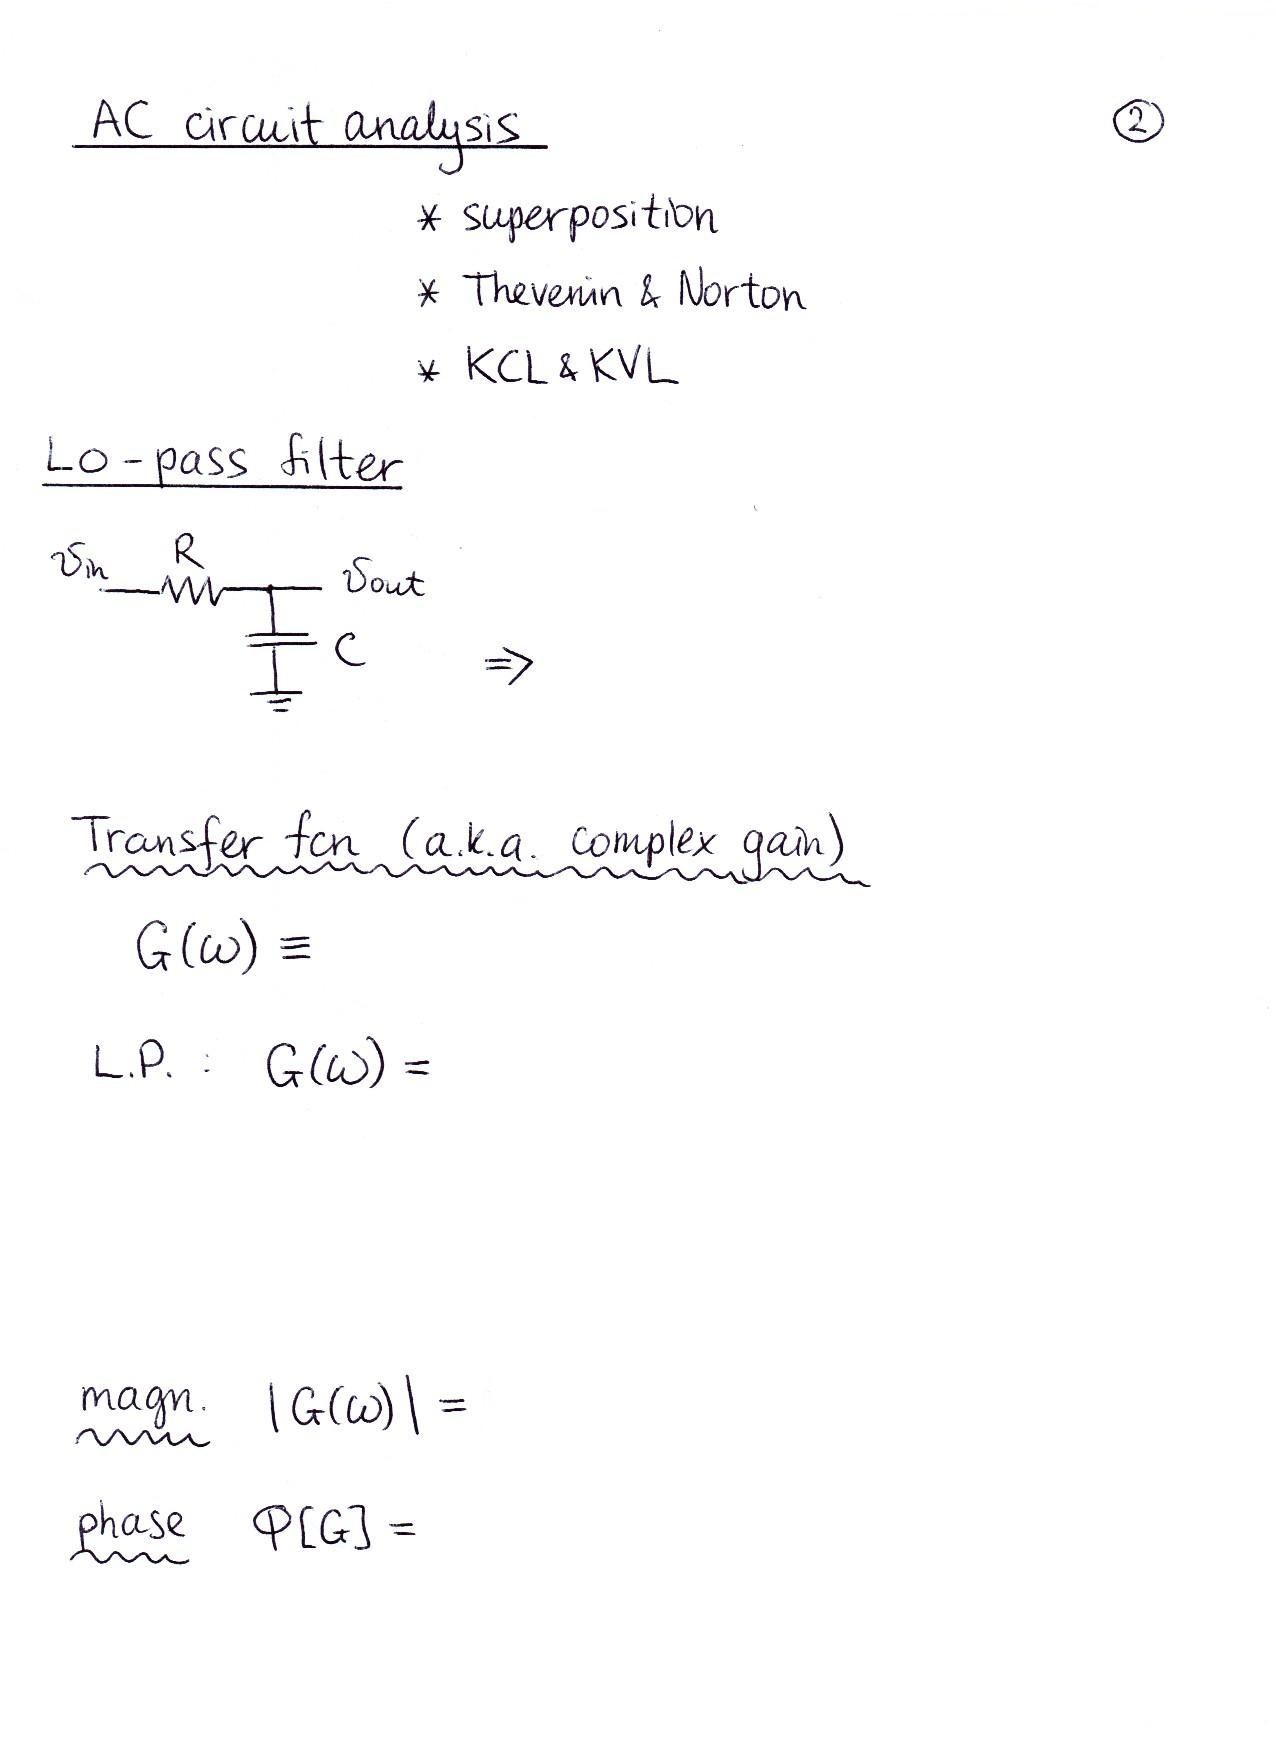 AC circuit analysis
②
* superposition
* Thevenin & Norton
* KCL & KVL
Lo-pass filter
vin
R
vout
C
⇒
Transfer fcn (a.k.a. complex gain)
G(ω) ≡
L.P. : G(ω) =
magn. |G(ω)| =
phase φ[G] =